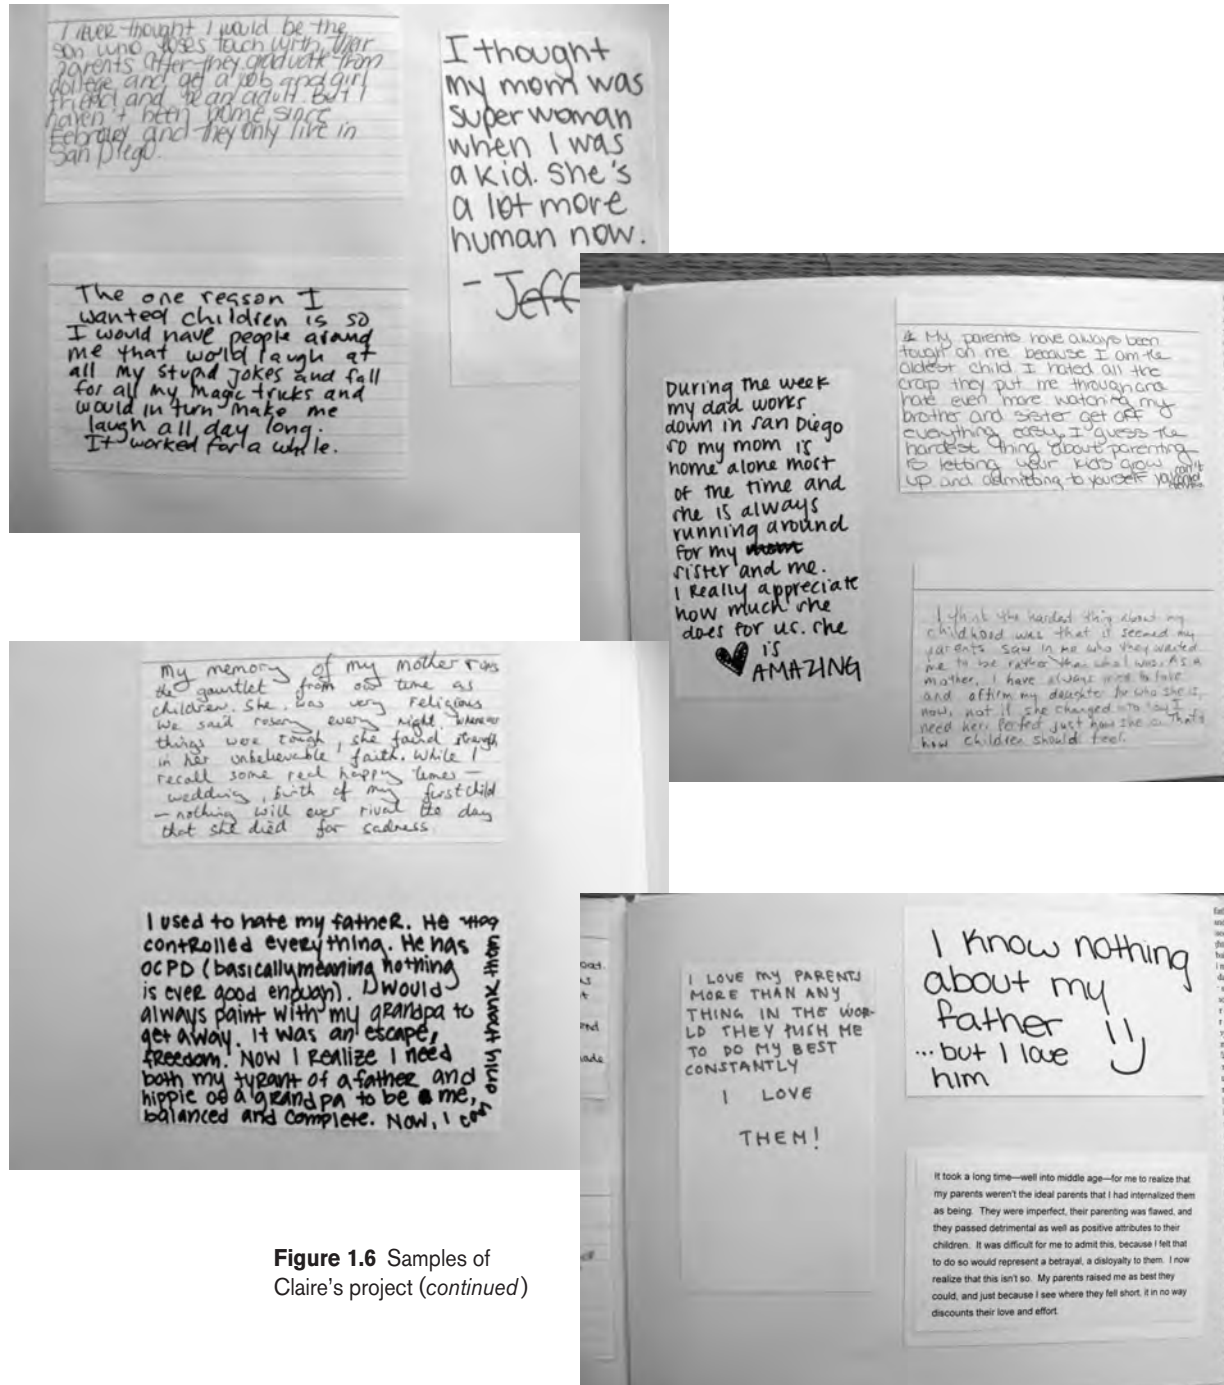 I never thought I would be the
son who loses touch with their
parents after they graduate from
college and get a job and girl
friend and be an adult. But I
haven't been home since
February and they only live in
San Diego.
I thought
my mom was
super woman
when I was
a kid. She's
a lot more
human now.
- Jeff
The one reason I
wanted children is so
I would have people around
me that would laugh at
all my stupid jokes and fall
for all my magic tricks and
would in turn make me
laugh all day long.
It worked for a while.
During the week
my dad works
down in san Diego
so my mom is
home alone most
of the time and
she is always
running around
for my mom
sister and me.
I really appreciate
how much she
does for us. she
is
AMAZING
My parents have always been
tough on me because I am the
oldest child I hated all the
crap they put me through and
hate even more watching my
brother and sister get off
everything easy. I guess the
hardest thing about parenting
is letting your kids grow
up and admitting to yourself you can't
I think the hardest thing about my
childhood was that it seemed my
parents saw in me who they wanted
me to be rather than who I was. As a
mother, I have always tried to love
and affirm my daughter for who she is,
now, not if she changed into say I
need her. Perfect just how she is. That's
how children should feel.
My memory of my mother runs
the gauntlet from our time as
children. She was very religious
We said rosary every night whenever
things were tough, she found strength
in her unbelievable faith. While I
recall some real happy times —
wedding, birth of my first child
— nothing will ever rival the day
that she died for sadness
I used to hate my father. He
controlled everything. He has
OCPD (basically meaning nothing
is ever good enough). I would
always paint with my grandpa to
get away. It was an escape,
freedom. Now I realize I need
both my tyrant of a father and
hippie of a grandpa to be me,
balanced and complete. Now, I can
only thank them both
I LOVE MY PARENTS
MORE THAN ANY
THING IN THE WOR-
LD THEY PUSH ME
TO DO MY BEST
CONSTANTLY
I LOVE
THEM!
I know nothing
about my
father
...but I love
him
It took a long time—well into middle age—for me to realize that
my parents weren't the ideal parents that I had internalized them
as being. They were imperfect, their parenting was flawed, and
they passed detrimental as well as positive attributes to their
children. It was difficult for me to admit this, because I felt that
to do so would represent a betrayal, a disloyalty to them. I now
realize that this isn't so. My parents raised me as best they
could, and just because I see where they fell short, it in no way
discounts their love and effort.
Figure 1.6 Samples of
Claire's project (continued)